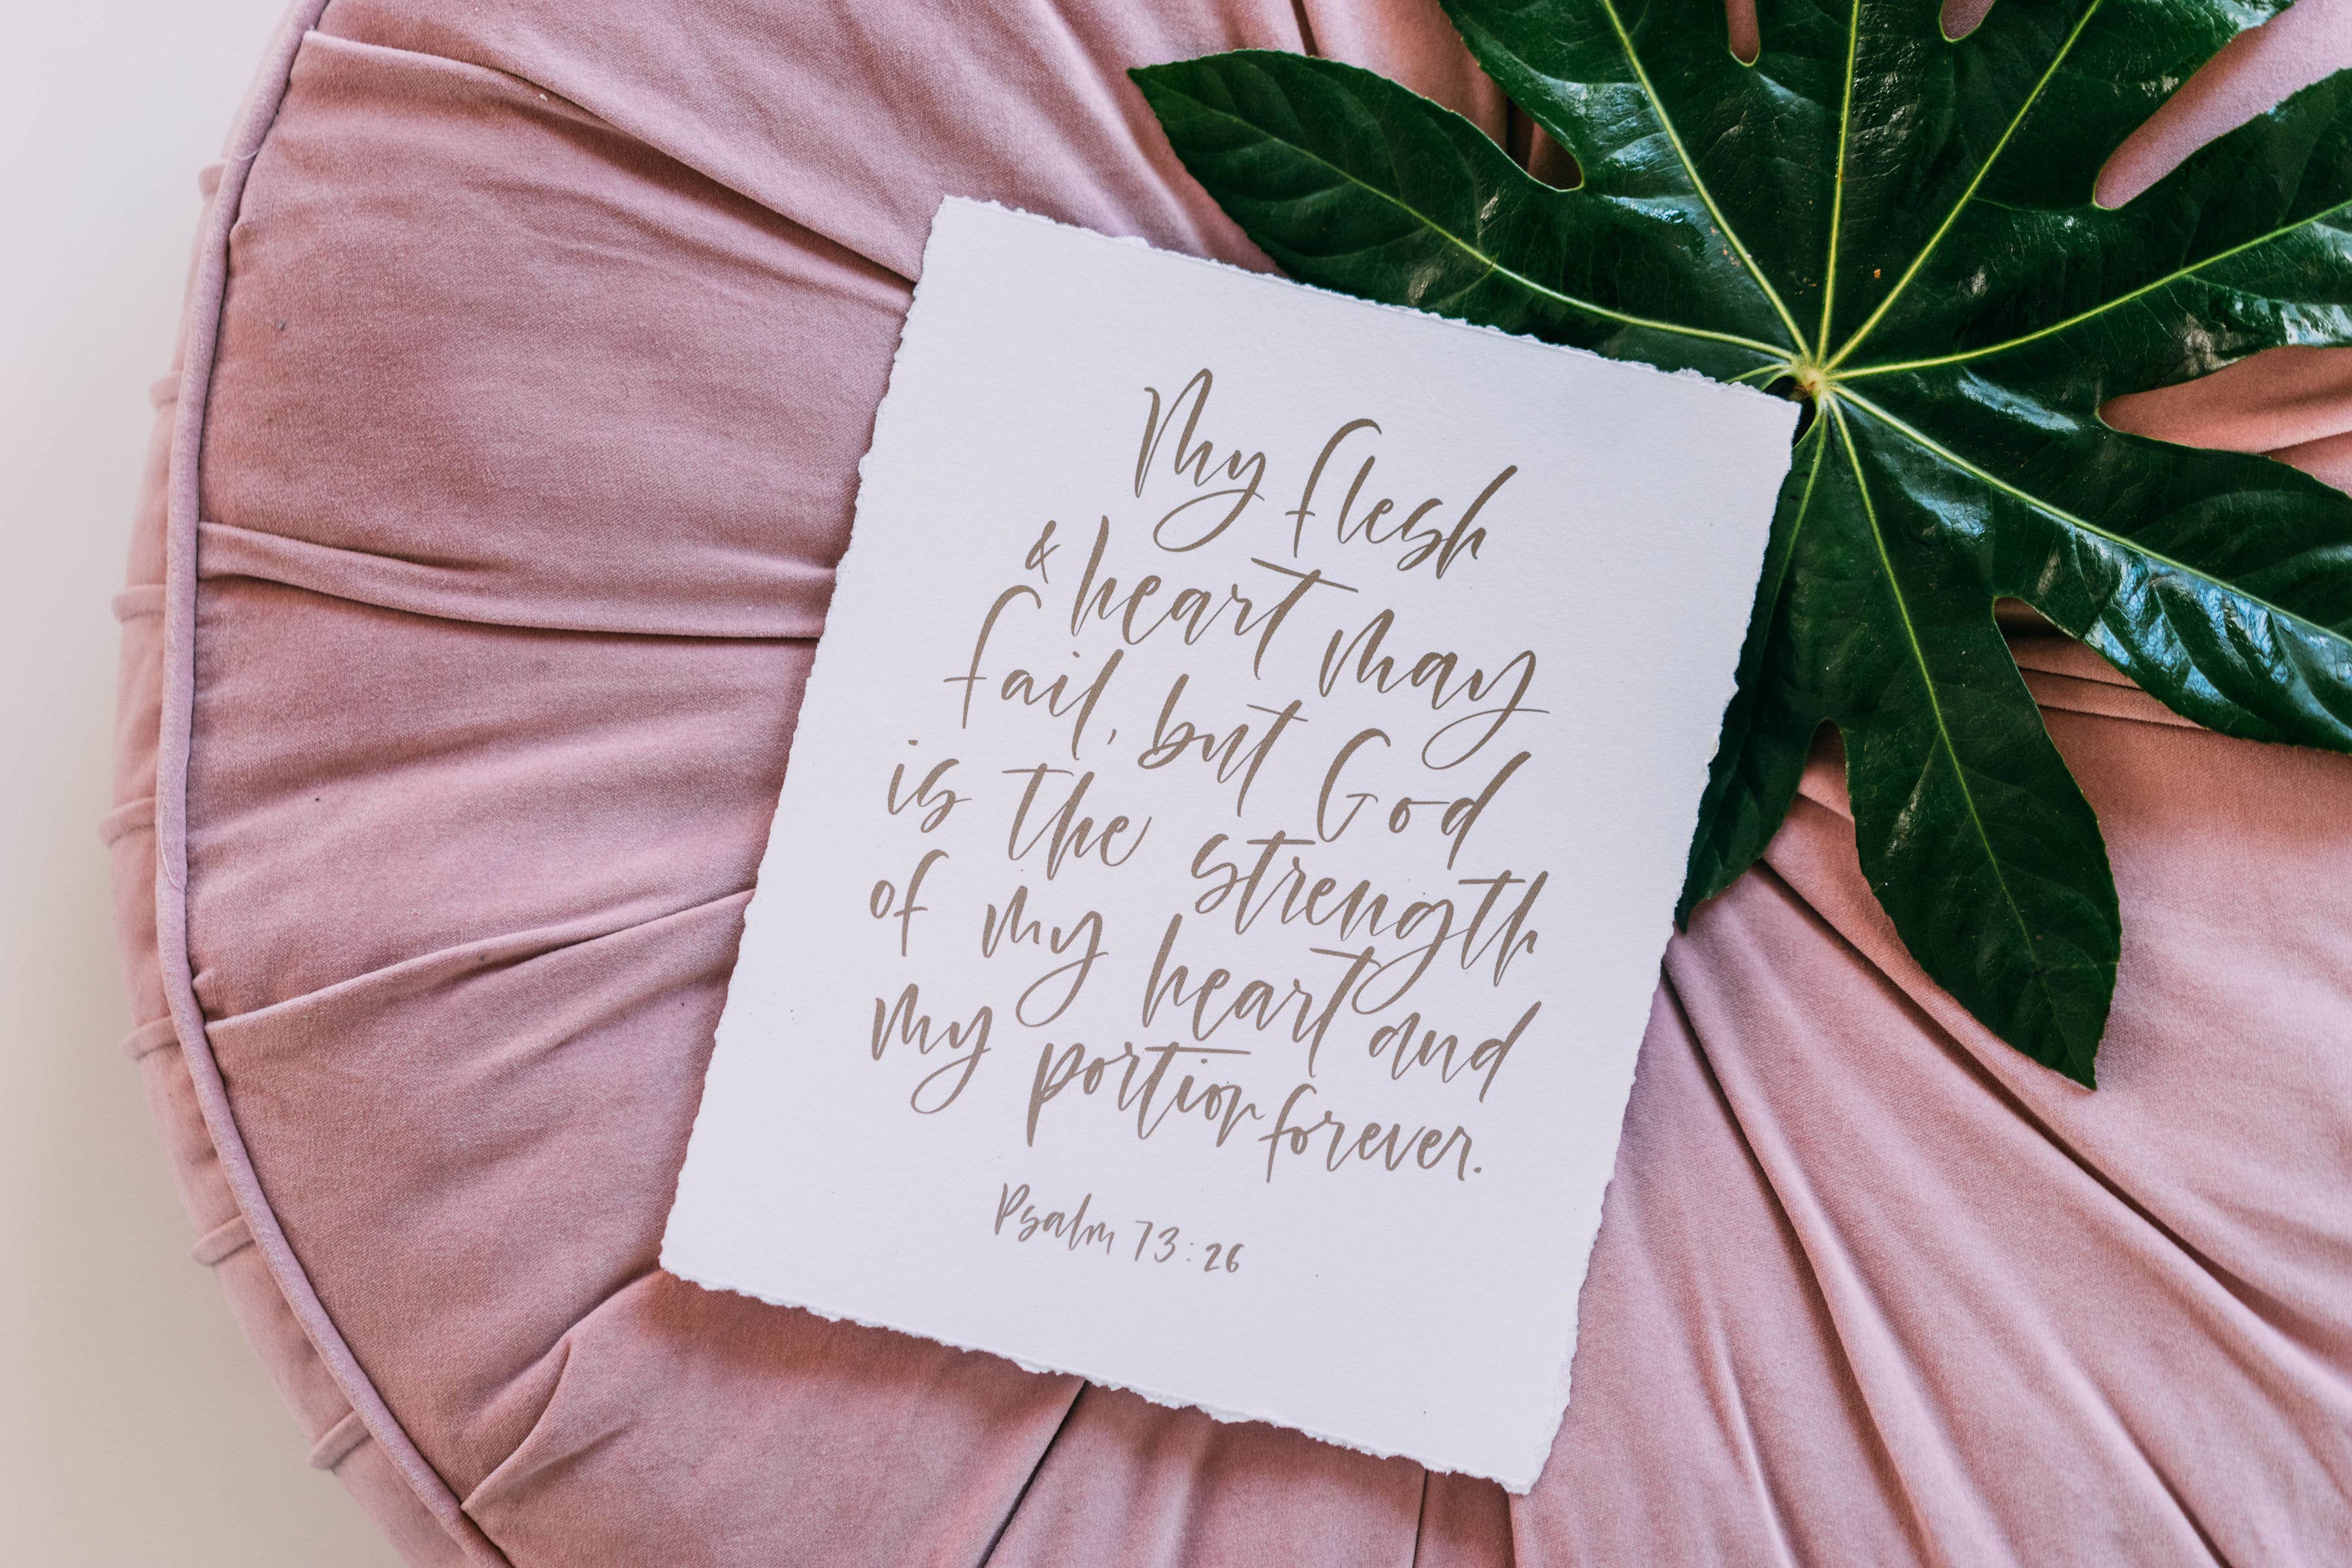 My flesh
& heart may
fail, but God
is the strength
of my heart and
my portion forever.
Psalm 73:26